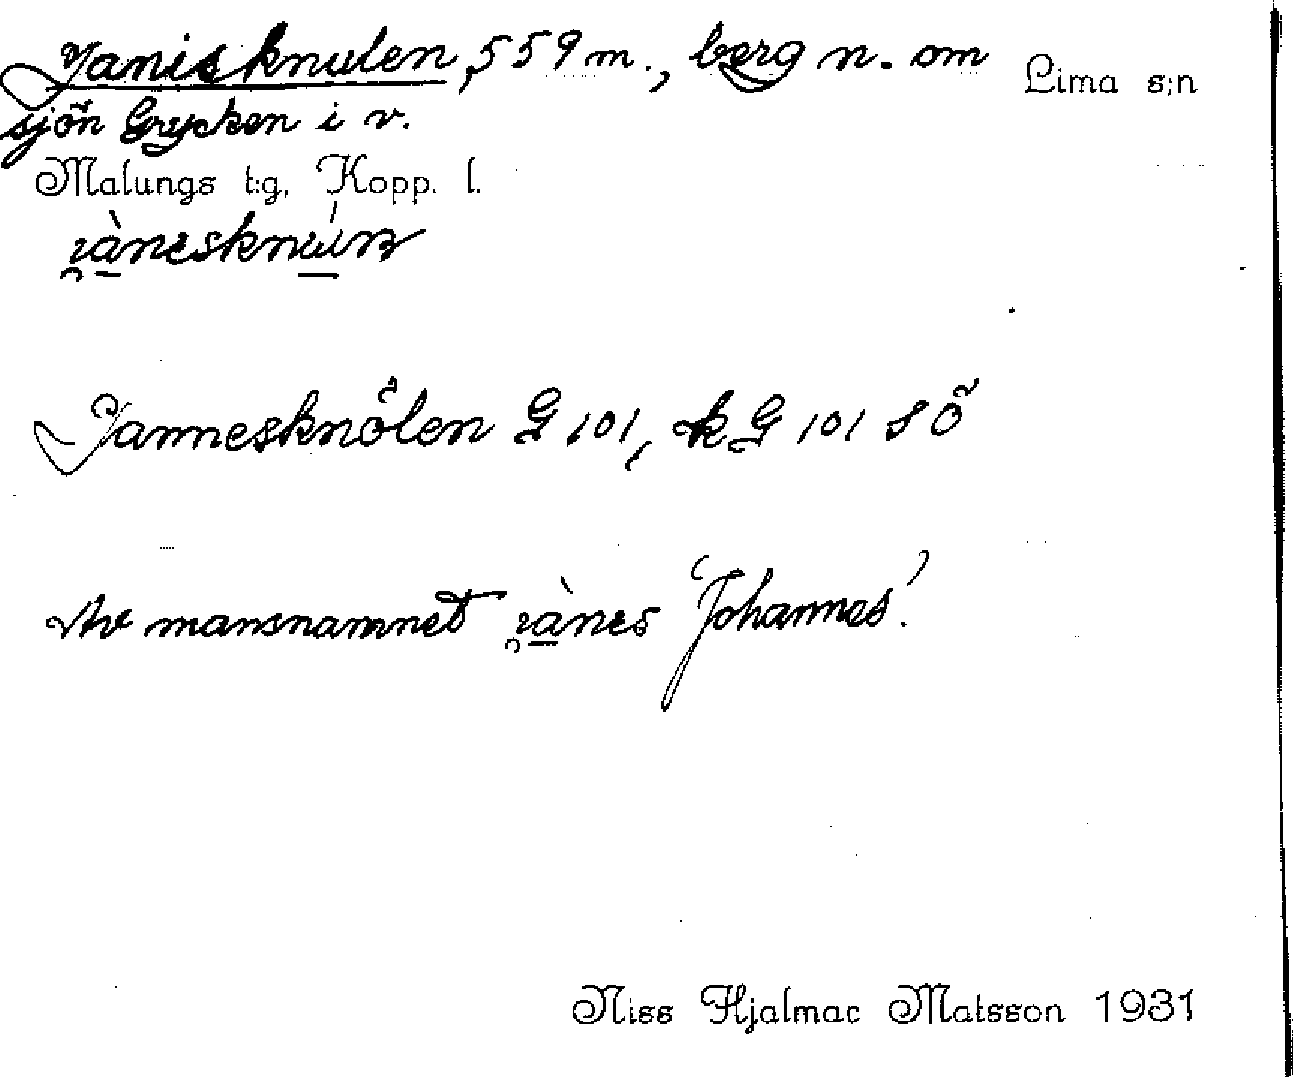 Janisknulen, 559 m., berg n. om
Lima s:n
sjön Grycken i v.
Malungs t:g, Kopp. l.
Jannesknölen G 101, k G 101 SÖ
Av mansnamnet 'Johannes'.
Niss Hjalmar Matsson 1931